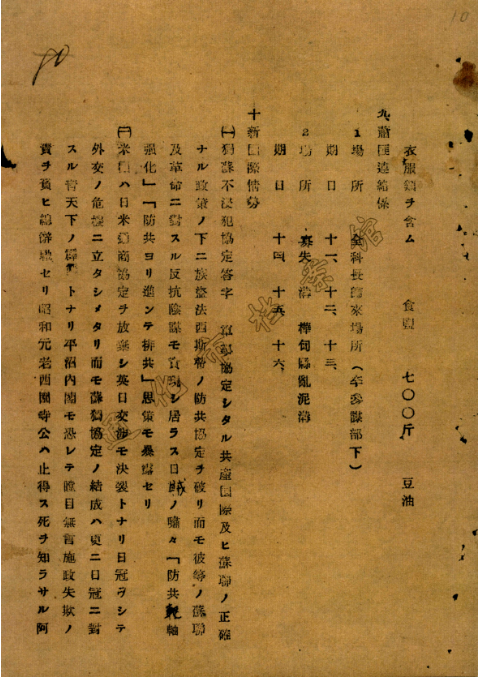 10
衣服類ヲ含ム 食塩 七〇〇斤 豆油
九 蕭匪連絡係
1 場所 金科長歸來場所（卒参謀部下）
期日 十一、十二、十三、
2 場所 樺甸縣亂泥溝
期日 十四、十五、十六、
十 新國際情勢
(一) 獨蘇不浸犯協定答字 協定シタル共產國際及ヒ蘇聯ノ正確
ナル政策ノ下ニ族整法西斯帝ノ防共協定ヲ破リ而モ彼等ノ蘇聯
及革命ニ對スル反抗陰謀モ實現シ居ラス日賊ノ嘯々「防共軸
强化」「防共ヨリ進ンテ排共」愚策モ暴露セリ
(二) 米國ハ日米通商協定ヲ放棄シ英日交渉モ決裂トナリ日冠ヲシテ
外交ノ危機ニ立タシメタリ而モ蘇獨協定ノ結成ハ更ニ日冠ニ對
スル靑天下ノ霹靂トナリ平沼內閣モ恐レテ瞠目無言施政失敗ノ
責ヲ負ヒ總辭職セリ昭和元老西園寺公ハ止得ス死ヲ知ラサル阿